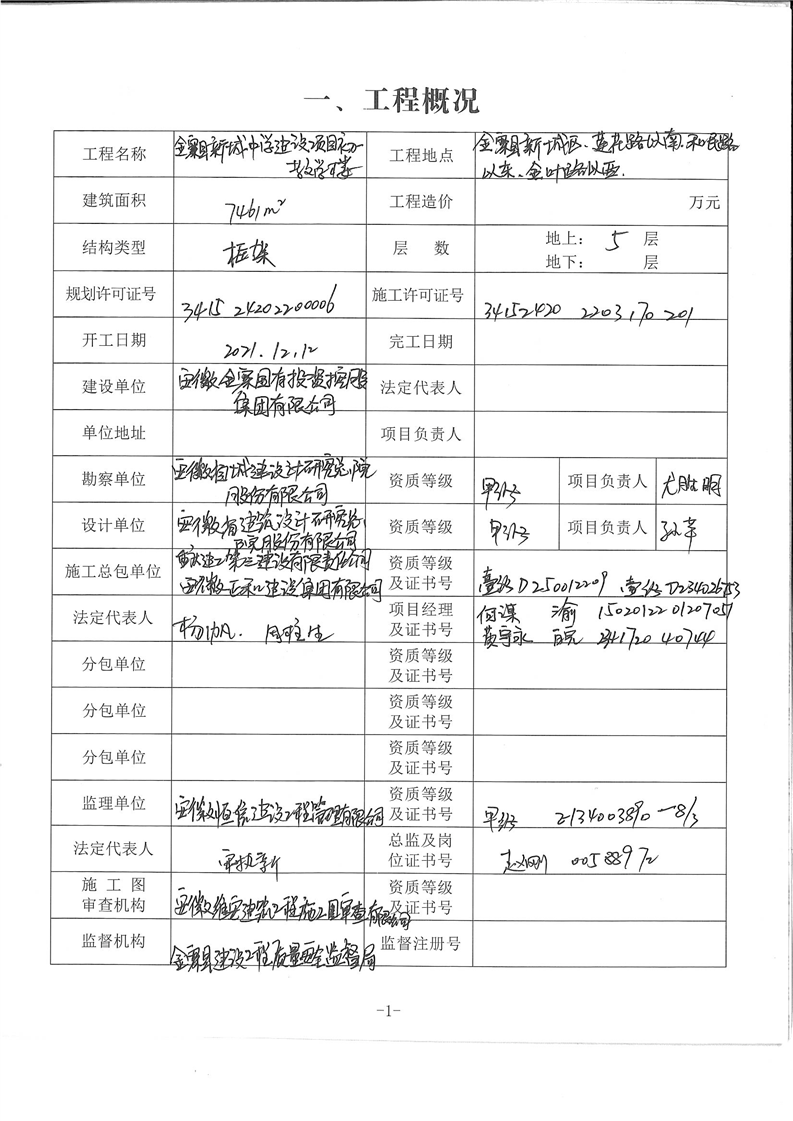 一、工程概况
工程名称 金寨县新城中学建设项目初一教学楼 工程地点 金寨县新城区、莲花路以南、和民路以东、金叶路以西.
建筑面积 7461m² 工程造价 万元
结构类型 框架 层 数 地上: 5 层
地下: 层
规划许可证号 3415 24202200006 施工许可证号 34152420 2203170 201
开工日期 2021.12.12 完工日期
建设单位 安徽金寨国有投资控股集团有限公司 法定代表人
单位地址 项目负责人
勘察单位 安徽省城建设计研究总院股份有限公司 资质等级 甲级 项目负责人 尤胜明
设计单位 安徽省建筑设计研究总院股份有限公司 资质等级 甲级 项目负责人 孙苹
施工总包单位 重庆建工第三建设有限责任公司 安徽正和建设集团有限公司 资质等级及证书号 壹级D250012209 壹级D234026753
法定代表人 杨帆. 周桂生 项目经理及证书号 何谋 渝 1502012201207051
黄宇永 皖 2341720 40744
分包单位 资质等级及证书号
分包单位 资质等级及证书号
分包单位 资质等级及证书号
监理单位 安徽恒信建设工程管理有限公司 资质等级及证书号 甲级 2134003890-8/3
法定代表人 总监及岗位证书号 赵刚 00588972
施 工 图
审查机构 安徽维实建筑工程施工图审查有限公司 资质等级及证书号
监督机构 金寨县建设工程质量安全监督局 监督注册号
-1-